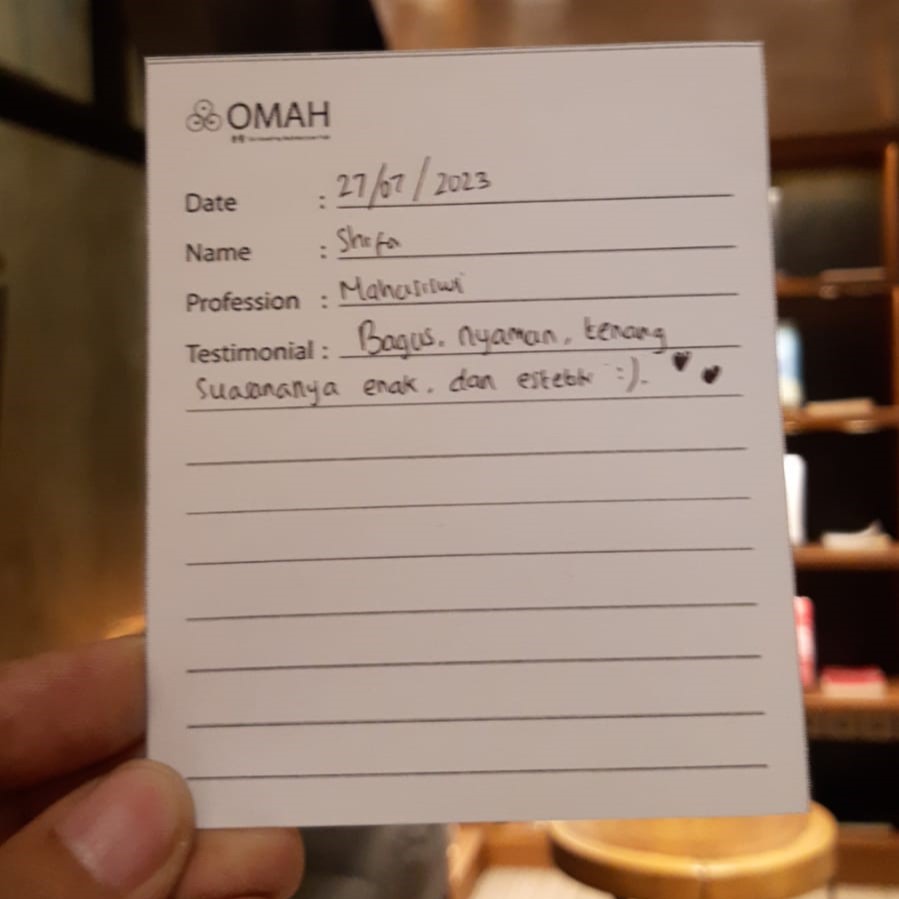 OMAH
Date : 27/07/2023
Name : Shefa
Profession : Mahasiswi
Testimonial : Bagus, nyaman, tenang
Suasananya enak, dan estetik :). ♥ ♥